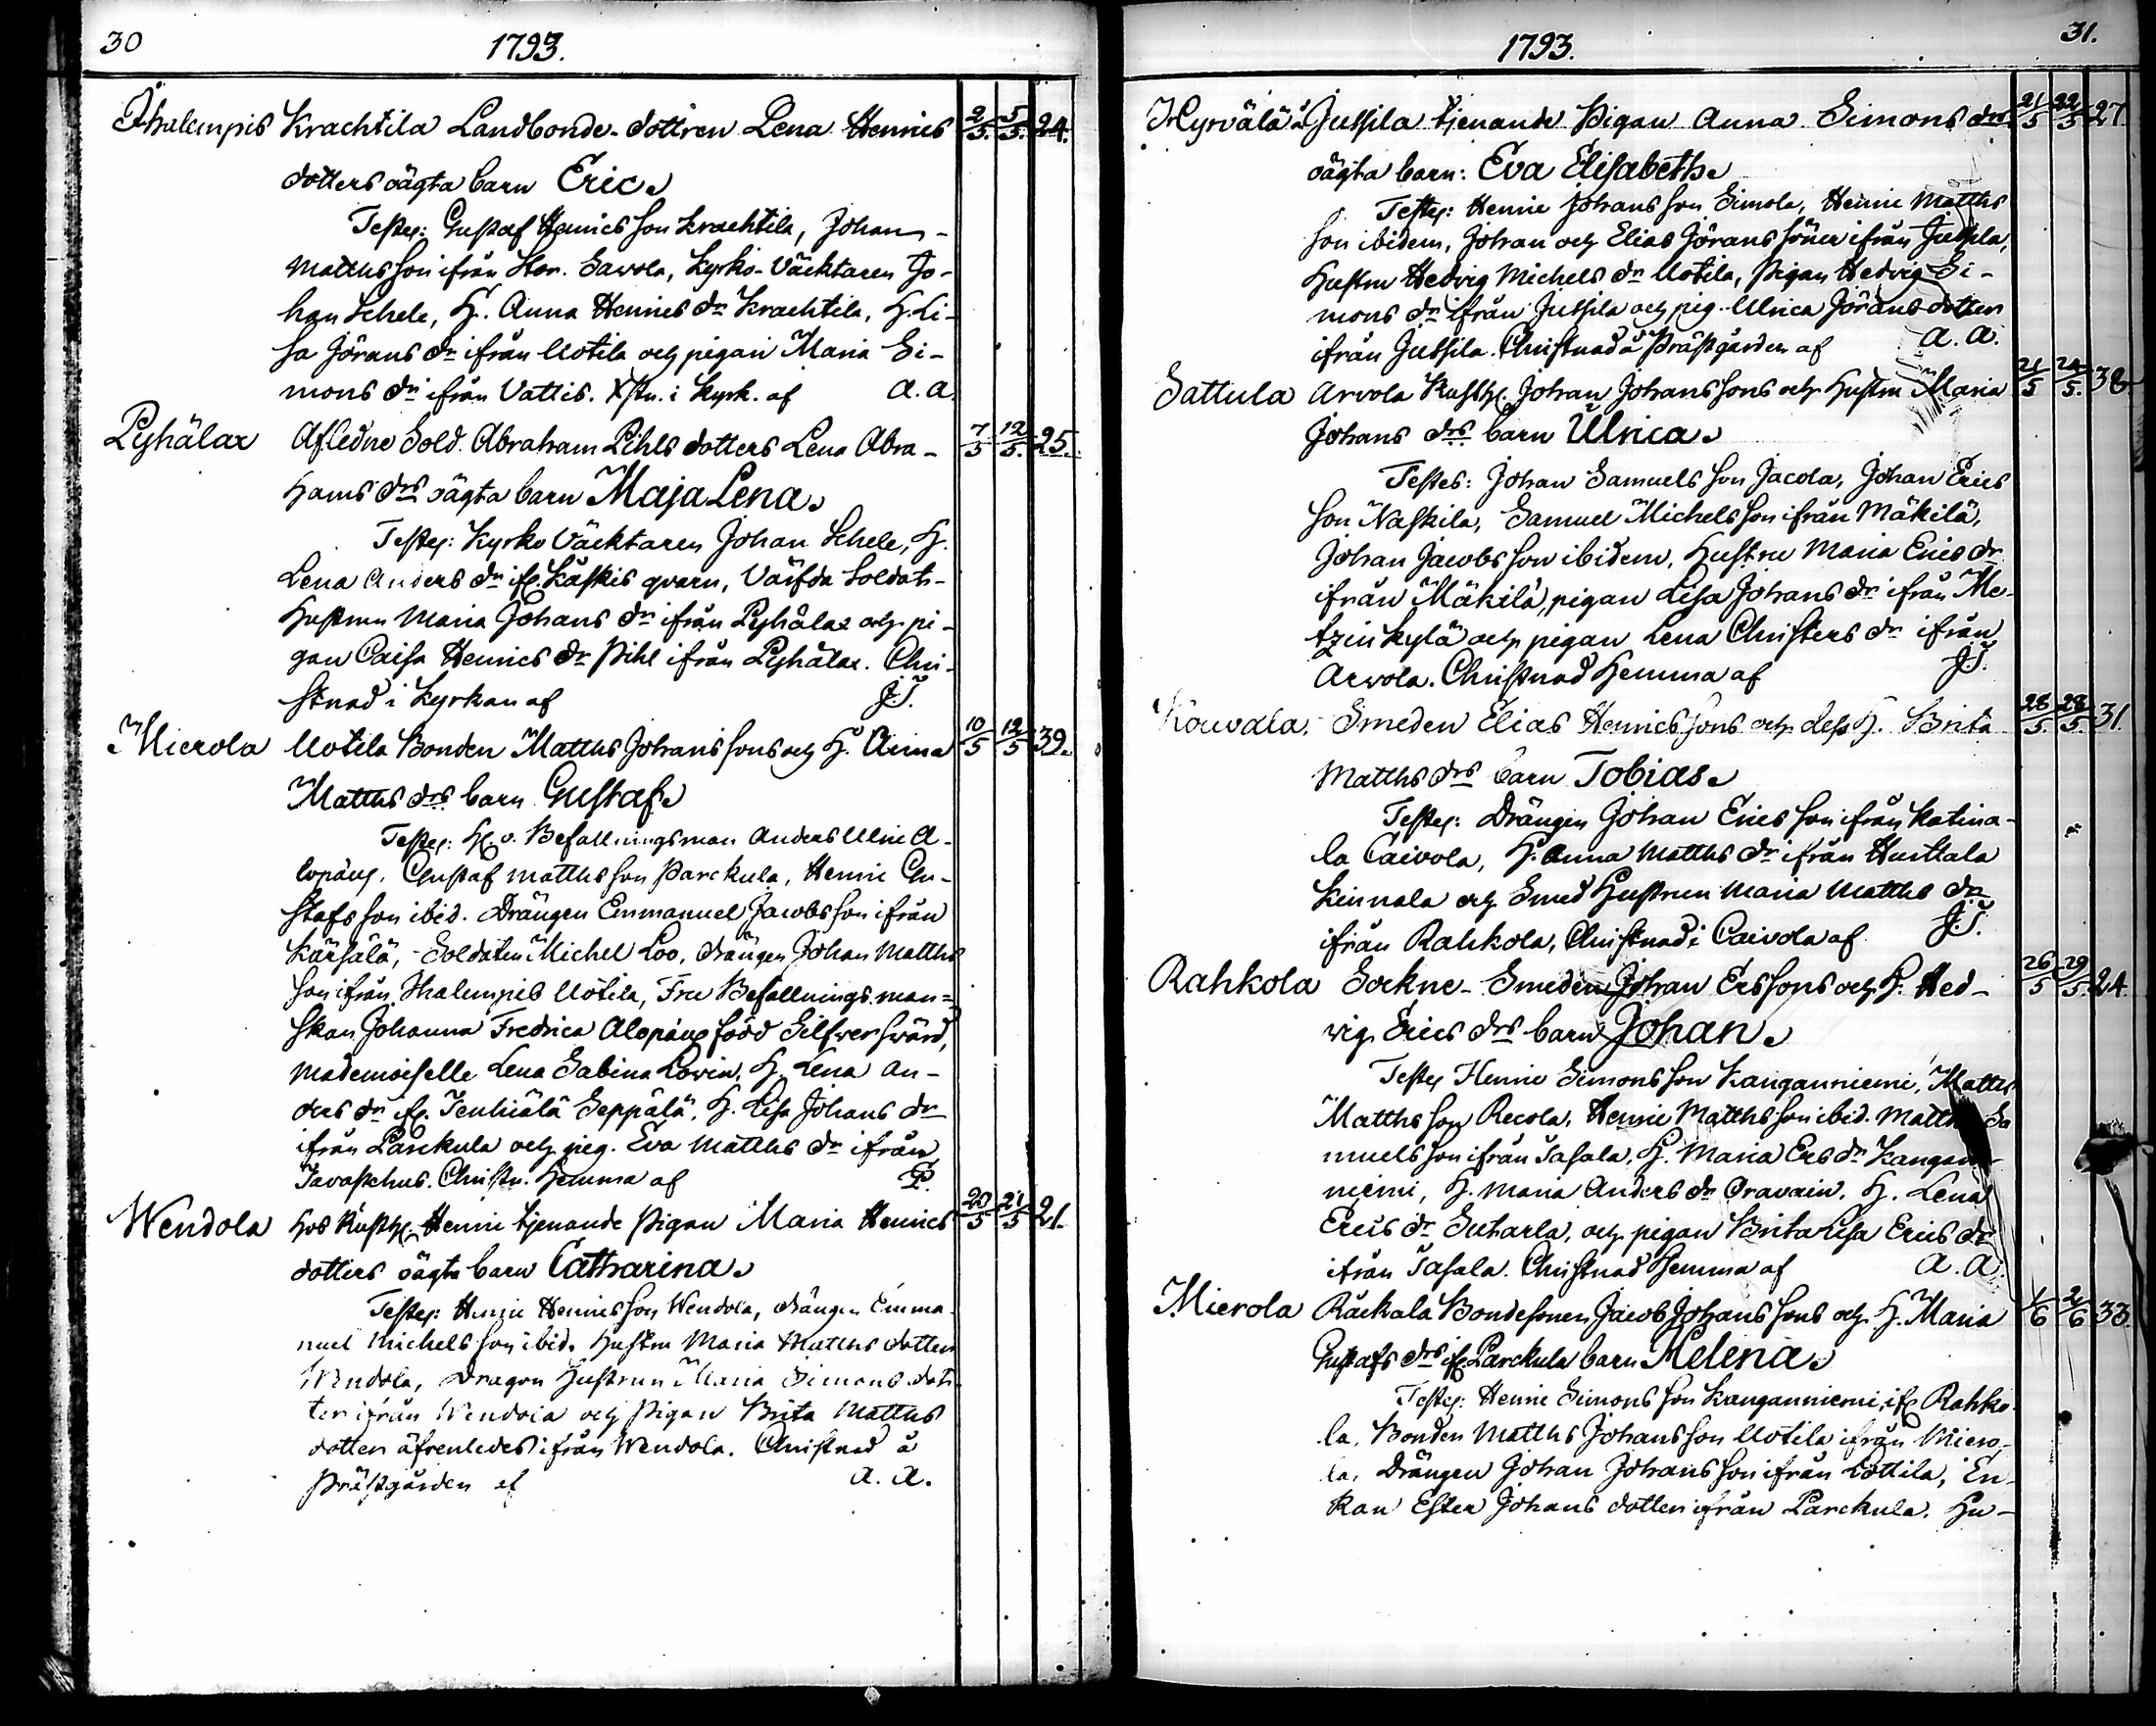 30
1793.
Ihalempis Krachtila Landbonde-dottren Lena Henrics 2/5. 5/5. 24.
dotters oägta barn Eric.
Testes: Gustaf Henricsson Krachtila, Johan
Matthsson ifrån Stor. Sawola, Kyrko-Väcktaren Jo-
han Schele, H. Anna Henrics dr Krachtila, H. Li-
sa Jörans dr ifrån Uotila och pigan Maria Si-
mons dr ifrån Vattis. Xstn. i Kyrk. af A. A.
Pyhälax Afledne Sold. Abraham Pihls dotters Lena Abra- 7/5 12/5. 25.
hams drs oägta barn Maja Lena.
Testes: Kyrko Väcktaren Johan Schele, H.
Lena Anders dr ifr. Käskis qvarn, Värfda Soldats-
Hustrun Maria Johans dr ifrån Pyhälax och pi-
gan Caisa Henrics dr Pihl ifrån Pyhälax. Chri-
stnad i Kyrkan af J. T.
Mierola Uotila Bonden Matths Johanssons och H. Anna 10/5 12/5 39.
Matths drs barn Gustaf.
Testes: H. v. Befallningsman Anders Ulric A-
lopæus, Gustaf Matthsson Parckula, Henric Gu-
stafsson ibid. Drängen Emmanuel Jacobsson ifrån
Kärsälä, Soldaten Michel Loo, drängen Johan Matths
son ifrån Ihalempis Uotila, Fru Befallnings man=
skan Johanna Fredrica Alopæus född Silfverswärd,
Mademoiselle Lena Sabina Lovin, H. Lena An-
ders dr ifr. Ieuliälä Seppälä, H. Lisa Johans dr
ifrån Parckula och pig. Eva Matths dr ifrån
Tavastehus. Christn. hemma af
Wendola hos Rusth. Henric tjenande Pigan Maria Henrics 20/5 21/5 21.
dotters oägta barn Catharina.
Testes: Henric Henricsson Wendola, drängen Emma-
nuel Michelsson ibid. Hustru Maria Matths dotter
Wendola, Dragon Hustrun Maria Simons dot-
ter ifrån Wendola och Pigan Brita Matths
dotter äfvenledes ifrån Wendola. Christnad å
Prästgården af A. A.
31.
1793.
Hyrvälä å Jussila tjenande Pigan Anna Simons drs 21/5 22/5 27
oägta barn: Eva Elisabeth.
Testes: Henric Johansson Simola, Henric Matths
son ibidem, Johan och Elias Jörans söner ifrån Jussila,
Hustru Hedvig Michels dr Uotila, Pigan Hedvig Si-
mons dr ifrån Jussila och pig. Ulrica Jörans dotter
ifrån Jussila. Christnad å Prästgården af A. A.
Sattula Arvola Rusth. Johan Johanssons och Hustru Maria 21/5 24/5. 38
Johans drs barn Ulrica.
Testes: Johan Samuelsson Jacola, Johan Erics
son Naskila, Samuel Michelsson ifrån Mäkilä,
Johan Jacobsson ibidem, Hustru Maria Erics dr
ifrån Mäkilä, pigan Lisa Johans dr ifrån Me-
tzinkylä och pigan Lena Christers dr ifrån
Arvola. Christnad hemma af J. T.
Kouvala, Smeden Elias Henricssons och dess H. Brita 28/5. 28/5. 31.
Matths drs barn Tobias.
Testes: Drängen Johan Ericsson ifrån Katina-
la Caivola, H. Anna Matths dr ifrån Hurttala
Kinnala och Smed Hustrun Maria Matths dr
ifrån Rahkola, Christnad i Caivola af J. T.
Rahkola Sockne-Smeden Johan Erssons och H. Hed- 26/5 29/5. 24.
vig Erics drs barn Johan.
Testes Henric Simonsson Kanganniemi, Matths
Matthsson Recola, Henric Matthsson ibid. Matths Sa
muelsson ifrån Tasala, H. Maria Ers dr Kangan-
niemi, H. Maria Anders dr Oravain, H. Lena
Erics dr Suharla, och pigan Brita Lisa Erics dr
ifrån Tasala. Christnad hemma af A. A.
Mierola Räckälä Bondesonen Jacob Johanssons och H. Maria 1/6 2/6 33.
Gustafs drs ifr. Parckula barn Helena.
Testes: Henric Simonsson Kanganniemi, ifr. Rahko-
la, Bonden Matths Johansson Uotila ifrån Miero-
la, Drängen Johan Johansson ifrån Lottila, En-
kan Ester Johans dotter ifrån Parckula. Hu-